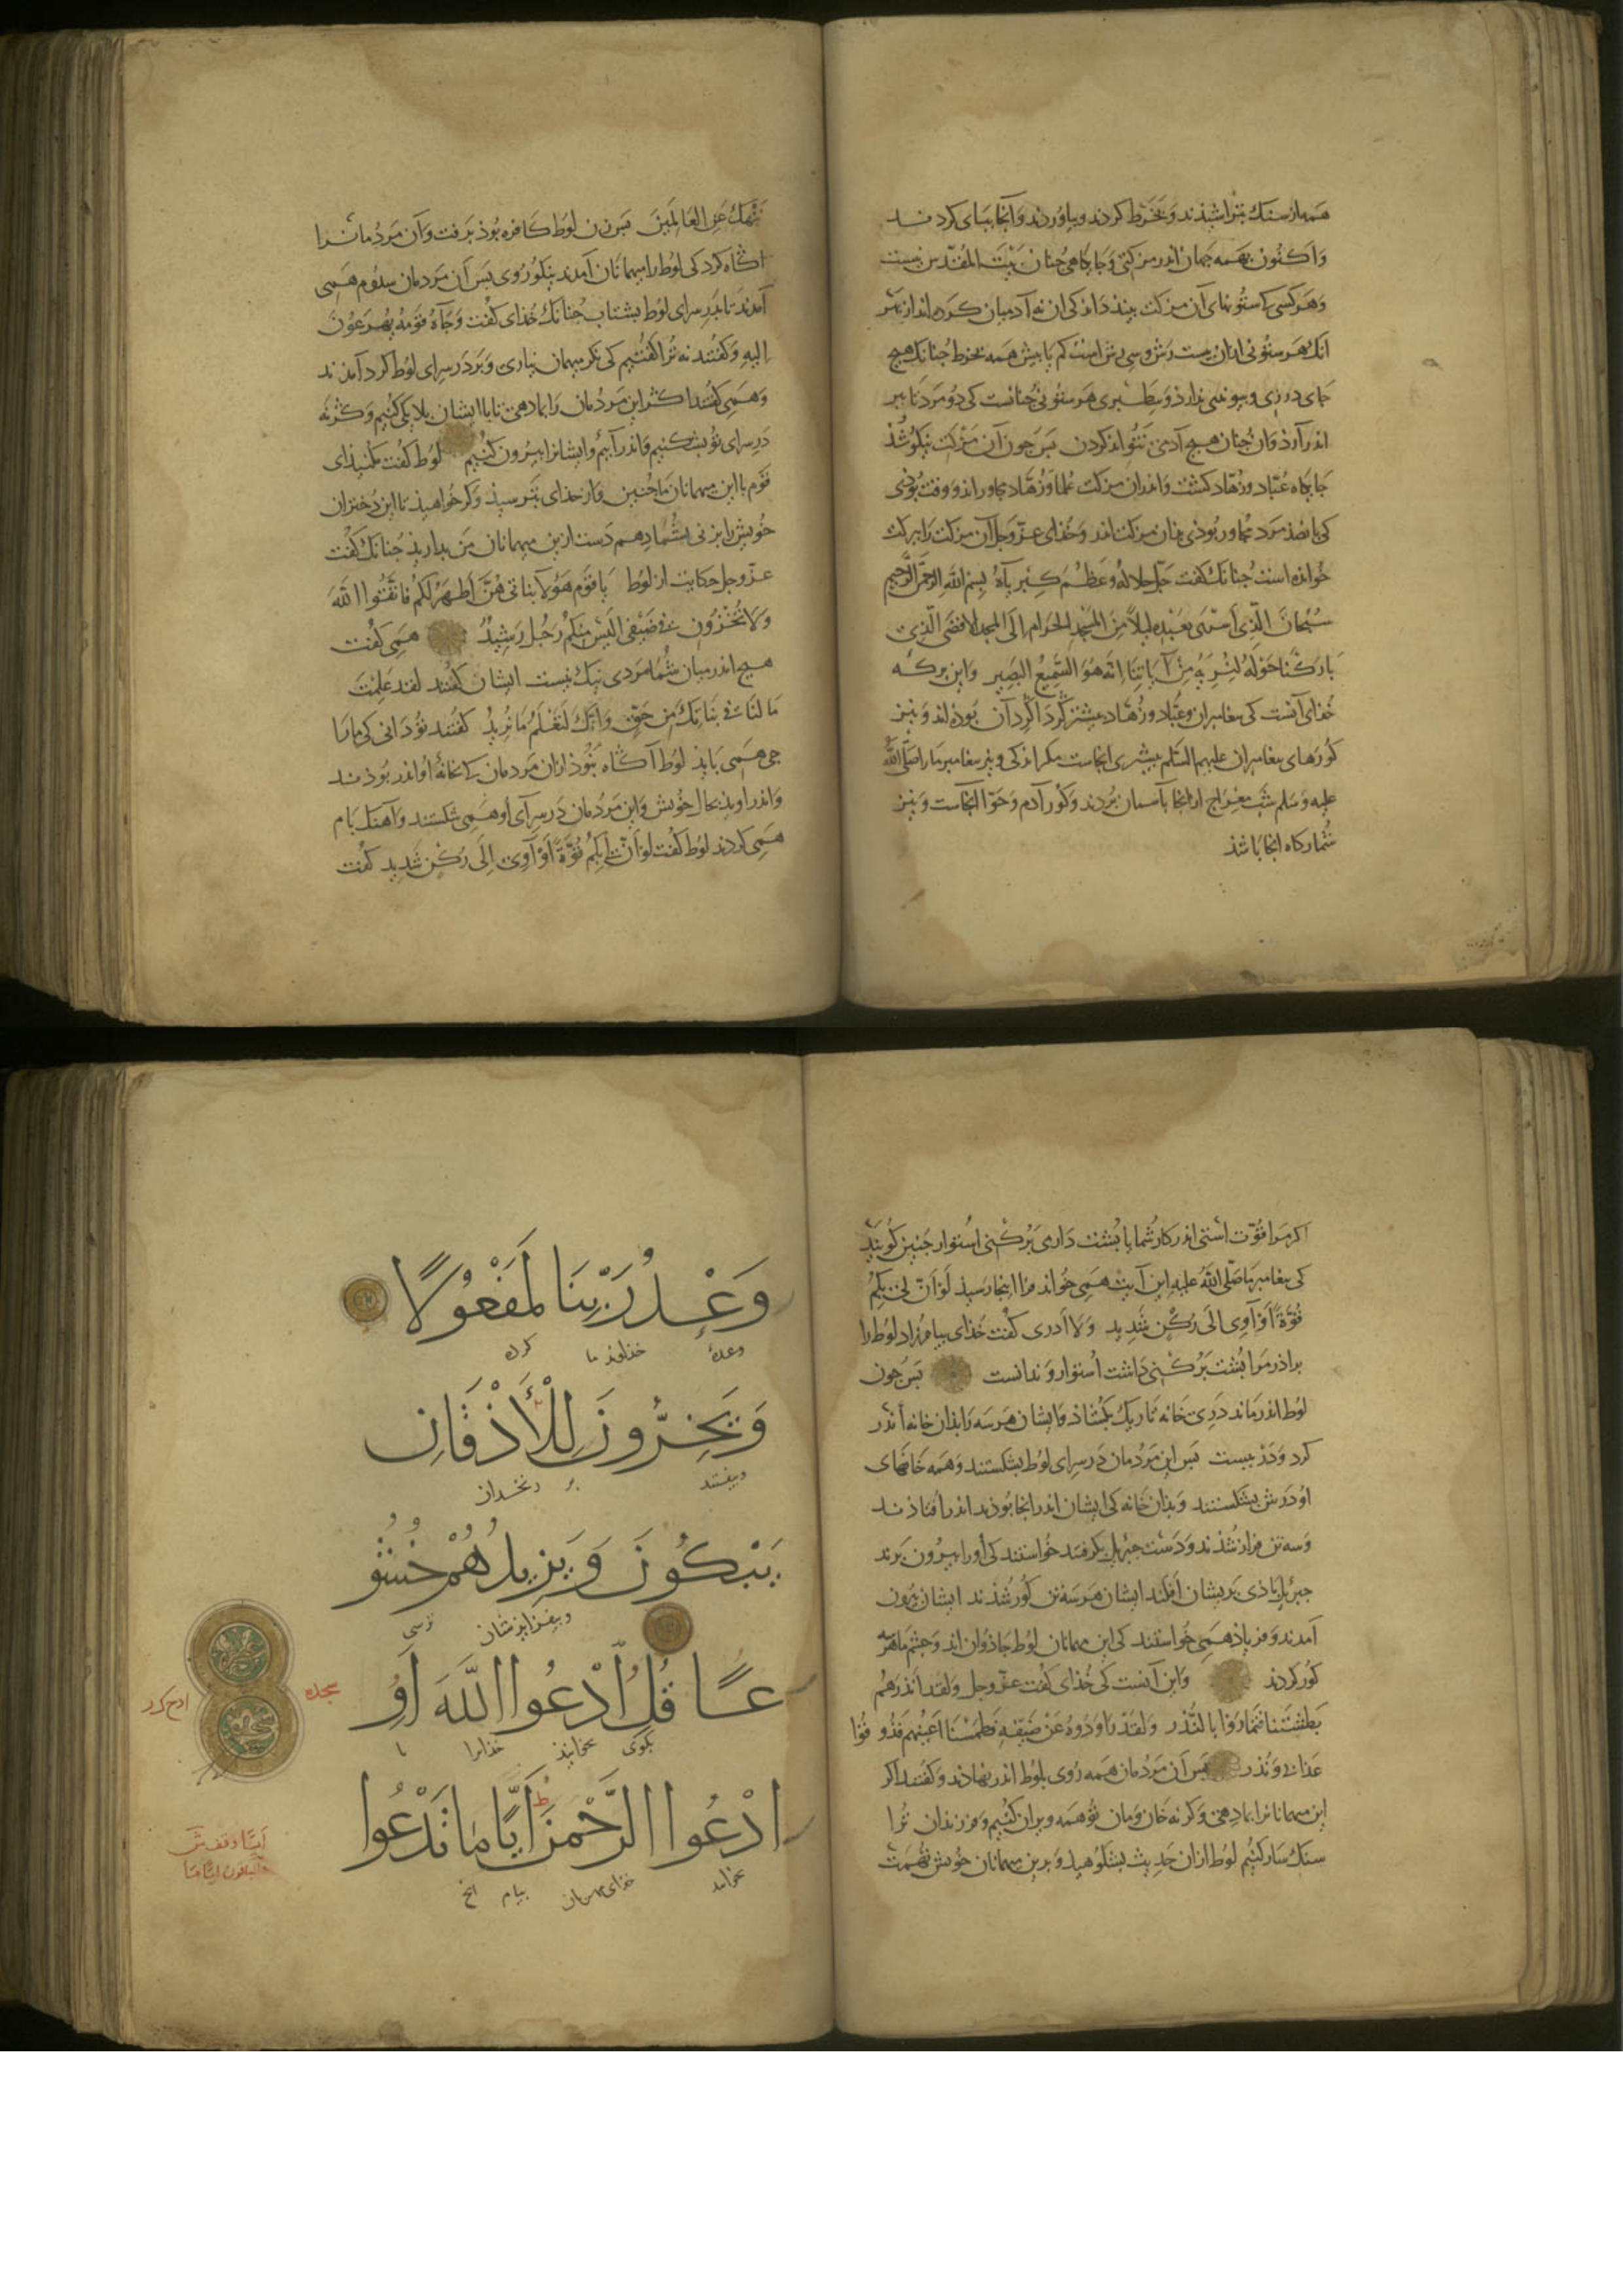 همه از سنك بتراشیذند و بخرط کردند و بیاوردند و آنجا بپای کردند
و اکنون بهمه جهان اندر مزکتی و جایکاهی چنان بیت المقدس نیست
و هر کسی کی ستونهای آن مزکت بیند داند کی ان نه آدمیان کرده اند از بهر
انك هر ستونی ازان بیست رش و سی رش است کم یا بیش همه بخرط چنانك هیچ
جای درزی و پیوندی نذارذ و سطبری هر ستونی چنانست کی دو مرد تا ببر
اندر آرذ و ان چنان هیچ آدمی نتواند کردن بس جون آن مزکت نیکو شذ
جایکاه عباد و زهاد کشت و اندران مزکت علما و زهاد مجاور اند و وقت بوذی
کی پانصذ مرد مجاور بوذی بذان مزکت اندر و خذای عز و جل آن مزکت را برکت
خوانده است چنانك کفت جل جلاله و عظم کبریآه بسم الله الرحمن الرحیم
سبحان الذی اسری بعبده لیلا من المسجد الحرام الی المسجد الاقصی الذی
بارکنا حوله لنریه من آیاتنا انه هو السمیع البصیر و این برکه
خذای آنست کی پیغامبران و عباد و زهاد بیشتر کرد اکرد آن بوذه اند و نیز
کورهای پیغامبران علیهم السلم بیشتری انجاست مکر اندکی و نیز پیغامبر ما را صلی الله
علیه و سلم شب معراج از انجا بآسمان بردند و کور آدم و حوا انجاست و نیز
شمارکاه انجا باشذ
ننهك عن العالمین بس زن لوط کافره بوذ برفت و آن مردمانرا
اکاه کرد کی لوط را میهمانان آمدند نیکوروی بس آن مردمان سذوم همی
آمدند تا بدر سرای لوط بشتاب چنانك خذای کفت و جآه قومه یهرعون
الیه و کفتند نه ترا کفتیم کی نکر میهمان نیاری و بر در سرای لوط کرد آمذند
و همی کفتند اکر این مردمان را بما دهی تا با ایشان بلایکی کنیم و کرنه
در سرای تو بشکنیم و اندر آییم و ایشانرا بیرون کنیم لوط کفت مکنیذ ای
قوم با این میهمانان ما چنین و از خذای بترسیذ و کر خواهیذ تا این دختران
خویش را بزنی بشما دهم دست ازین میهمانان من بداریذ چنانك کفت
عز و جل حکایت از لوط یا قوم هؤلا بناتی هن اطهر لکم فاتقوا الله
و لا تخزون فی ضیفی الیس منکم رجل رشید همی کفت
هیچ اندر میان شما مردی نیك نیست ایشان کفتند لقد علمت
ما لنا فی بناتك من حق و انك لتعلم ما نرید کفتند تو دانی کی ما را
جی همی بایذ لوط آکاه نبوذ ازان مردمان کی بخانهٔ او اندر بوذند
و اندر اویذ بحال خویش و این مردمان در سرآی او همی شکستند و آهنك بام
همی کردند لوط کفت لو ان لی بکم قوة او آوی الی رکن شدید کفت
اکر مرا قوت استی اندر کار شما یا پشت داری بر کنی استوار چنین کویند
کی پیغامبر ما صلی الله علیه این آیت همی خواند مرا اینجا رسیذ لو ان لی بکم
قوة او آوی الی رکن شدید و لا ادری کفت خذای بیامرزاد لوط را
براذرم را پشت برکنی داشت استوار و ندانست بس جون
لوط اندر ماند در خانه تاریك بکشاذ و ایشان هر سه را بذان خانه اندر
کرد و در ببست بس این مردمان در سرای لوط بشکستند و همه خانهای
او درش بشکستند و بذان خانه کی ایشان اندر انجا بوذند اندر افتاذند
و سه تن فراز شذند و دست جبریل بکرفتند خواستند کی او را بیرون برند
جبریل باذی بریشان افکند ایشان هر سه تن کور شذند ایشان بیرون
آمدند و فریاذ همی خواستند کی این میهمانان لوط جاذوان اند و چشم ما هر سه
کور کردند و این آنست کی خذای کفت عز و جل و لقد انذرهم
بطشتنا فتماروا بالنذر و لقد راودوه عن ضیفه فطمسنا اعینهم فذوقوا
عذابی و نذر بس آن مردمان همه روی بلوط اندر نهاذند و کفتند اکر
این میهمانانرا بما دهی و کرنه خان و مان تو همه ویران کنیم و فرزندان ترا
سنك سار کنیم لوط ازان حدیث بشکوهیذ و برین میهمانان خویش تهمت
وَعْدُ رَبِّنَا لَمَفْعُولًا
وعدهٔ خذاوند ما کرده
وَيَخِرُّونَ لِلْأَذْقَانِ
و بیفتند بر زنخدان
يَبْكُونَ وَيَزِيدُهُمْ خُشُو
و بیفزایذشان ترسی
عًا قُلِ ادْعُوا اللَّهَ أَوِ
بکوی بخوانیذ خذایرا یا
سجده
ادْعُوا الرَّحْمَنَ أَيًّا مَا تَدْعُوا
بخوانید خذای مهربان بنام